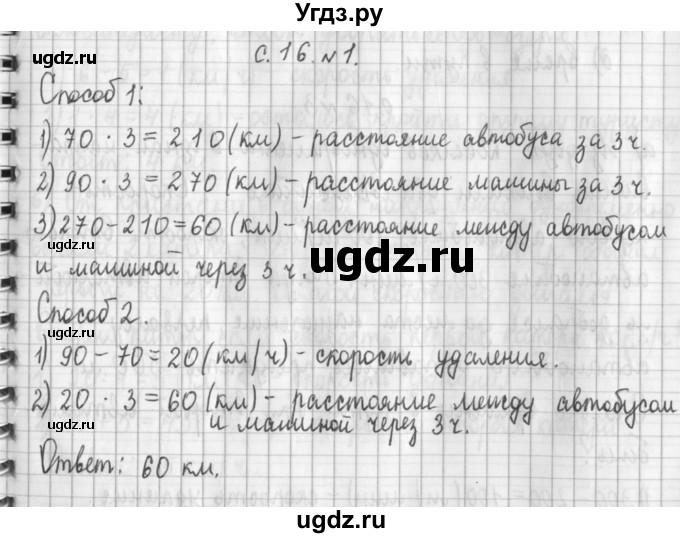 Угдз.ру
ugdz.ru
с. 16. №1.
ugdz.ru
Способ 1:
1) 70 · 3 = 210 (км) – расстояние автобуса за 3 ч.
ugdz.ru
2) 90 · 3 = 270 (км) – расстояние машины за 3 ч.
3) 270 – 210 = 60 (км) – расстояние между автобусом
ugdz.ru
и машиной через 3 ч.
ugdz.ru
Способ 2.
ugdz.ru
1) 90 – 70 = 20 (км/ч) – скорость удаления.
ugdz.ru
2) 20 · 3 = 60 (км) – расстояние между автобусом
и машиной через 3 ч.
ugdz.ru
Ответ: 60 км.
ugdz.ru
ugdz.ru